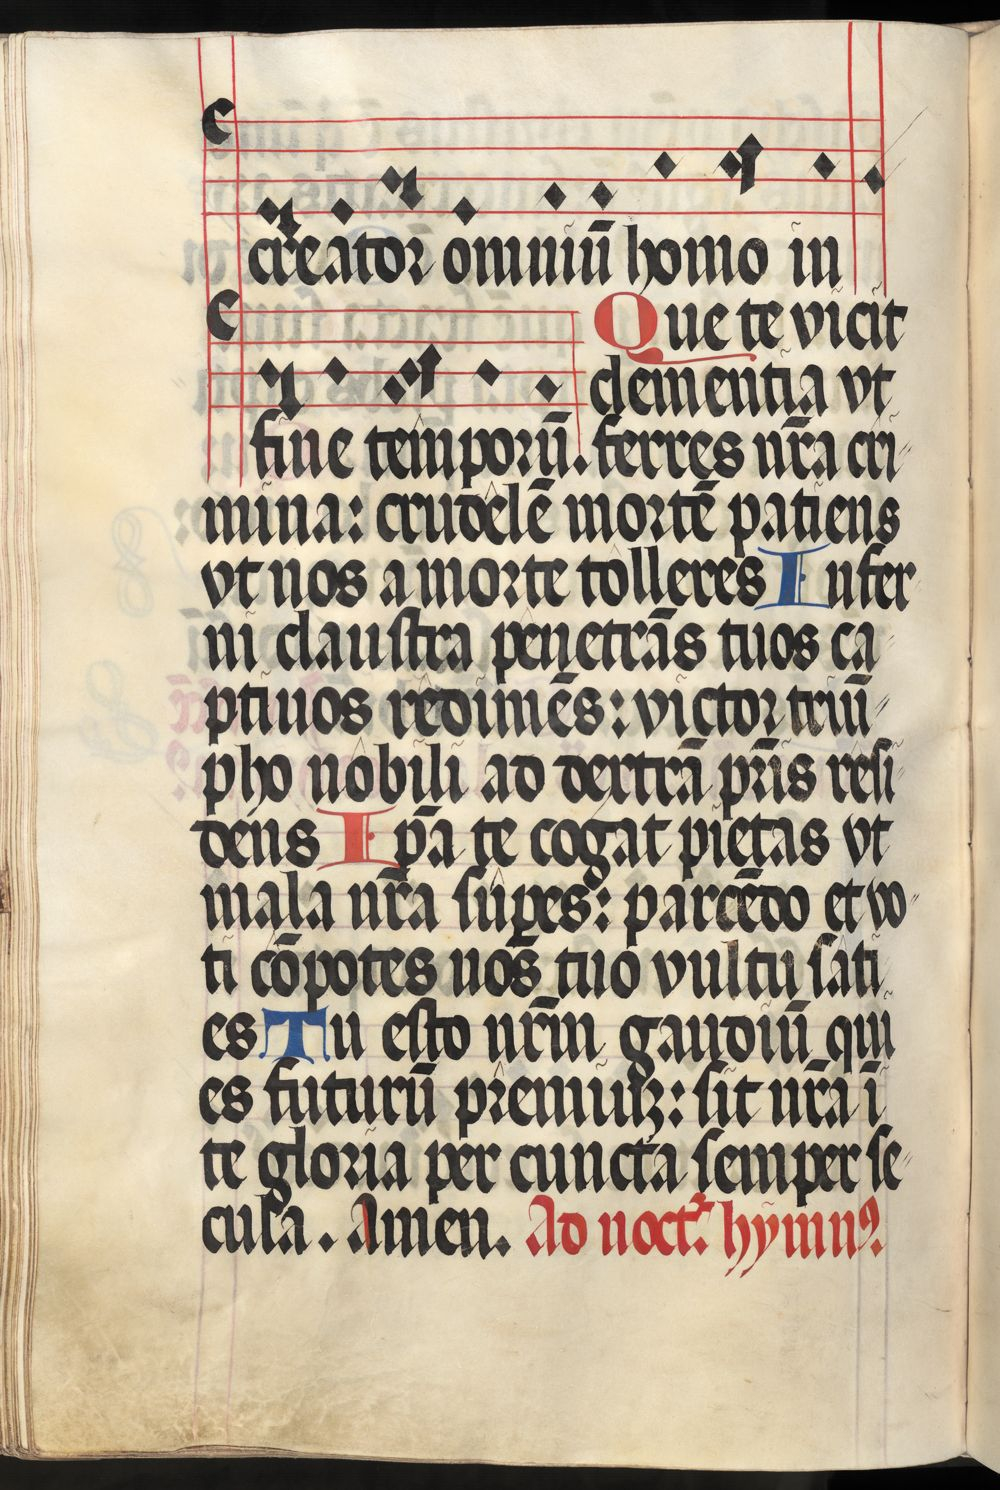 creator omniū homo in
Que te vicit
clementia vt
fine temporū. ferres nr̄a cri
mina: crudelē mortē patiens
vt nos a morte tolleres Infer
ni claustra penetrās tuos ca
ptiuos redimēs: victor triū
pho nobili ad dextrā pr̄is resi
dens Ip̄a te cogat pietas vt
mala nr̄a suꝑes: parcēdo et vo
ti cōpotes nos tuo vultu sati
es Tu esto nr̄m gaudiū qui
es futurū premiuꝫ: sit nr̄a ī
te gloria per cuncta semper se
cula. Amen. Ad noct. hymnꝰ.